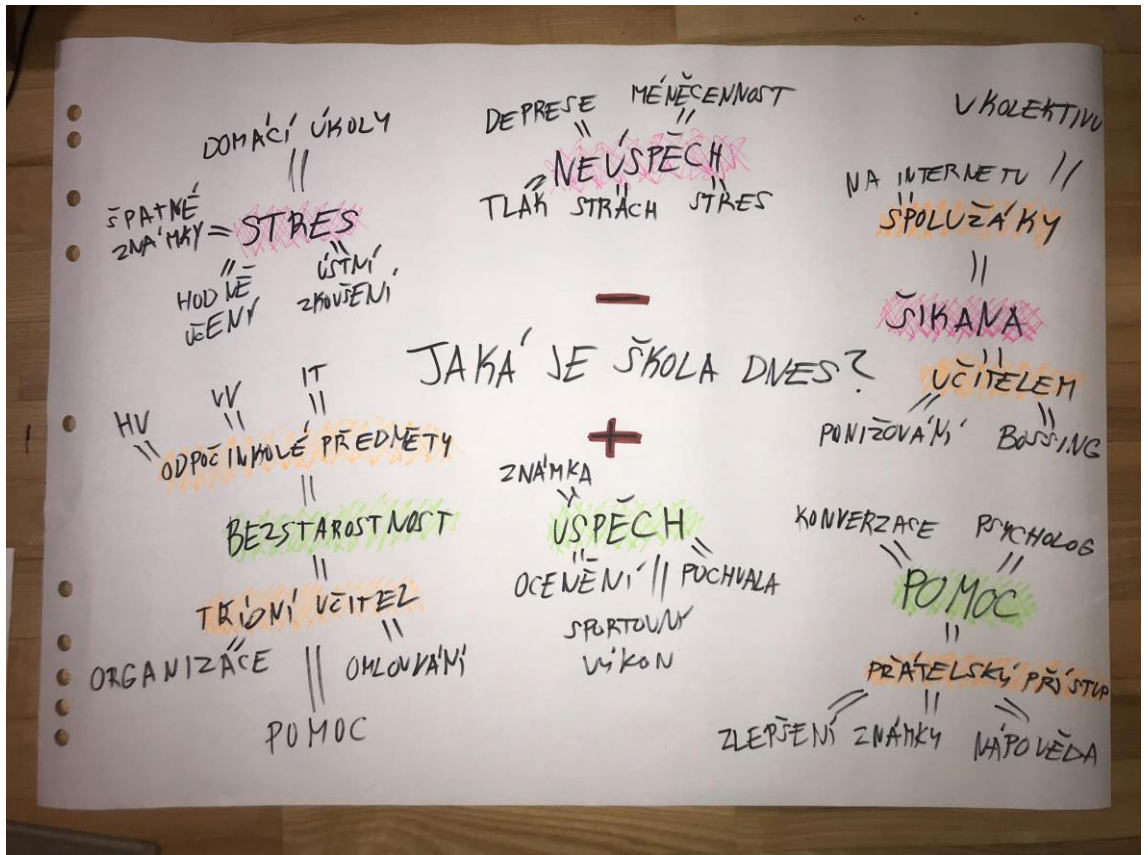 DOMÁCÍ ÚKOLY
ŠPATNÉ
ZNÁMKY
STRES
HODNĚ
UČENÍ
ÚSTNÍ
ZKOUŠENÍ
DEPRESE
MÉNĚCENNOST
NEÚSPĚCH
TLAK
STRACH
STRES
V KOLEKTIVU
NA INTERNETU
SPOLUŽÁKY
ŠIKANA
UČITELEM
PONIŽOVÁNÍ
BOSSING
−
JAKÁ JE ŠKOLA DNES?
+
HV
VV
IT
ODPOČINKOLÉ PŘEDMĚTY
BEZSTAROSTNOST
TŘÍDNÍ UČITEL
ORGANIZACE
OMLOUVÁNÍ
POMOC
ZNÁMKA
ÚSPĚCH
OCENĚNÍ
POCHVALA
SPORTOVNÝ
VÝKON
KONVERZACE
PSYCHOLOG
POMOC
PŘÁTELSKÝ PŘÍSTUP
ZLEPŠENÍ ZNÁMKY
NÁPOVĚDA